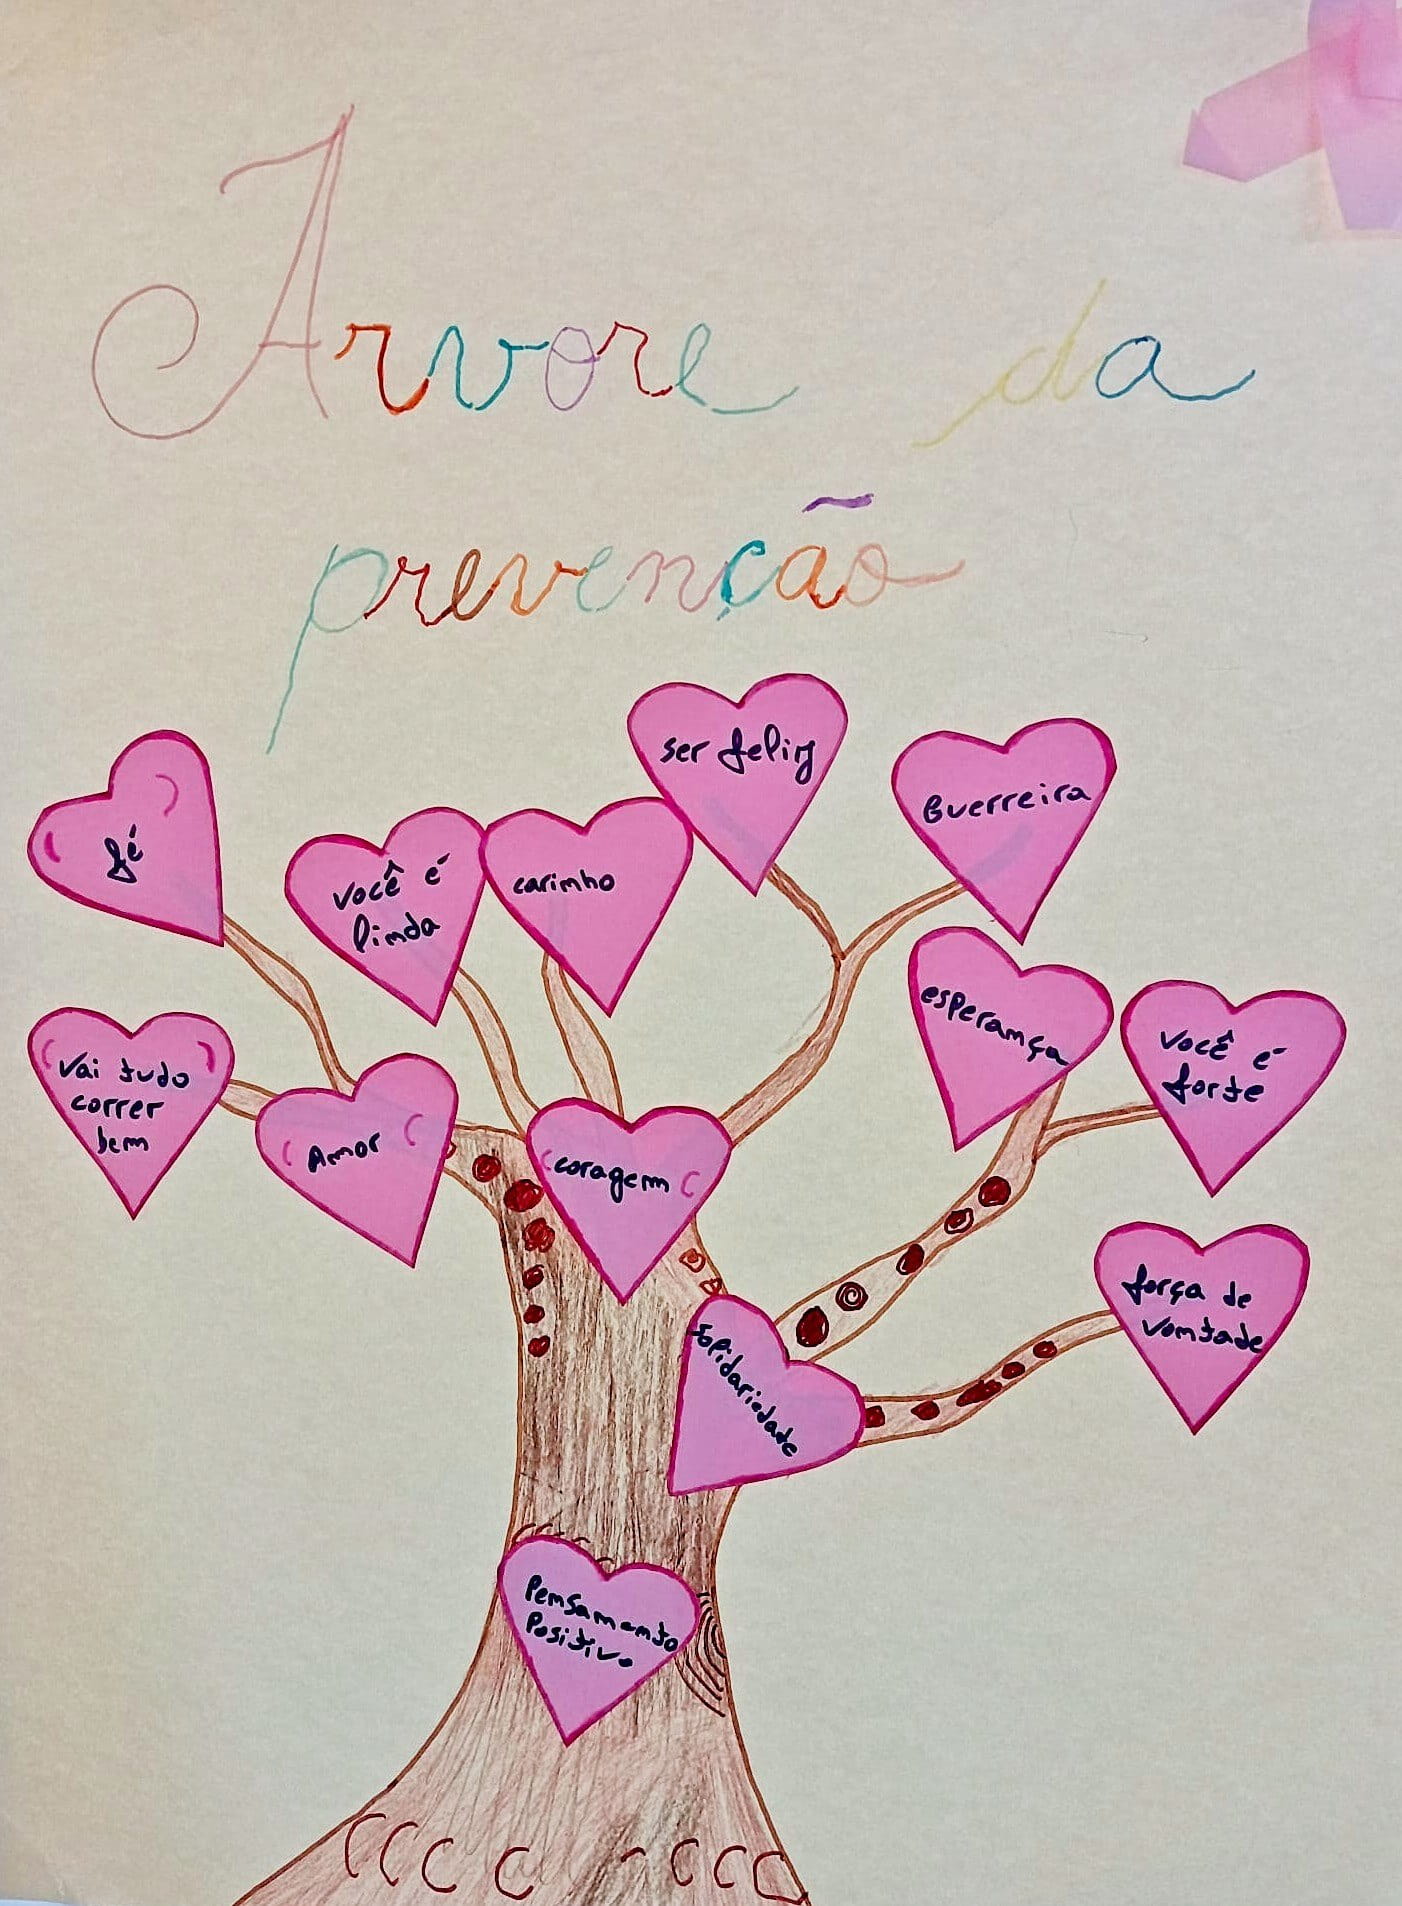 Arvore da
prevenção
ser feliz
Guerreira
fé
você é
linda
carinho
esperança
você é
forte
Vai tudo
correr
bem
Amor
coragem
força de
vontade
Solidariedade
Pensamento
Positivo